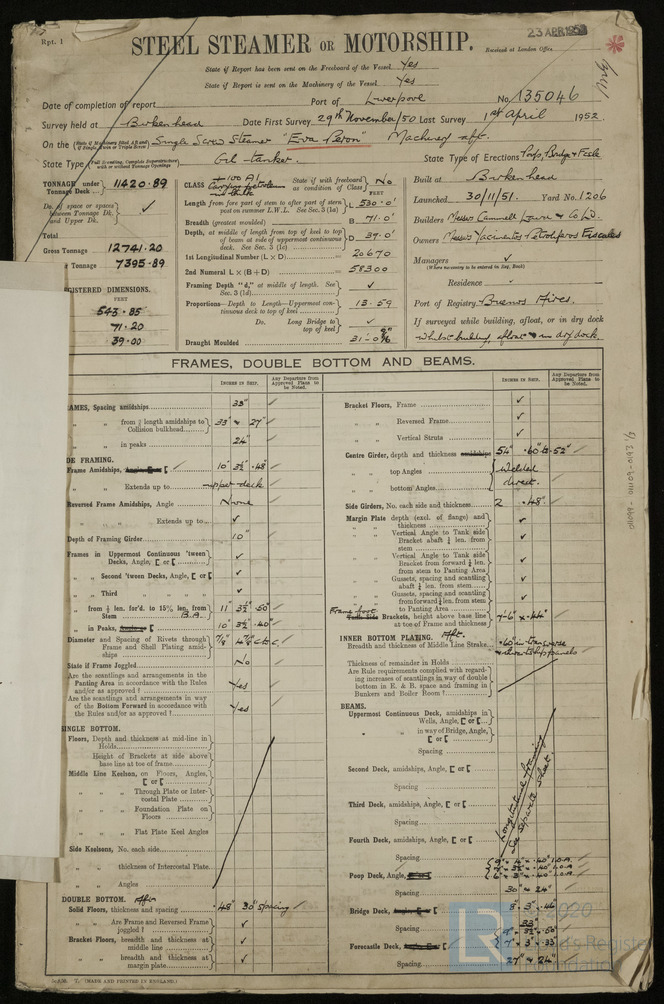 Rpt. 1
23 APR 1952
STEEL STEAMER OR MOTORSHIP.
Received at London Office
State if Report has been sent on the Freeboard of the Vessel Yes
State if Report is sent on the Machinery of the Vessel Yes
Date of completion of report Port of Liverpool No. 135046
Survey held at Birkenhead Date First Survey 29th November/50 Last Survey 1st April 1952.
On the Single Screw Steamer "Eva Peron" Machinery aft.
State Type Oil tanker. State Type of Erections Poop, Bridge & Fcsle
TONNAGE under Tonnage Deck 11420.89
Do. of space or spaces between Tonnage Dk. and Upper Dk. ✓
Total
Gross Tonnage 12741.20
Tonnage 7395.89
GISTERED DIMENSIONS.
FEET
543.85
71.20
39.00
CLASS +100 A1 State if with freeboard as condition of Class No
FEET
Length from fore part of stem to after part of stern post on summer L.W.L. See Sec. 3 (1a) L 530.0'
Breadth (greatest moulded) B 71.0'
Depth, at middle of length from top of keel to top of beam at side of uppermost continuous deck. See Sec. 3 (1c) D 39.0'
1st Longitudinal Number (L × D) 20670
2nd Numeral L × (B + D) 58300
Framing Depth "d," at middle of length. See Sec. 3 (1d) ✓
Proportions—Depth to Length—Uppermost continuous deck to top of keel 13.59
Do. Long Bridge to top of keel ✓
Draught Moulded
Built at Birkenhead
Launched 30/11/51. Yard No. 1206
Builders Messrs Cammell Laird & Co Ld.
Owners Messrs Yacimientos Petroliferos Fiscales
Managers ✓
(Where necessary to be entered in Reg. Book)
Residence ✓
Port of Registry Buenos Aires.
If surveyed while building, afloat, or in dry dock
whilst building, afloat & in dry dock
FRAMES, DOUBLE BOTTOM AND BEAMS.
INCHES IN SHIP. Any Departure from Approved Plans to be Noted.
AMES, Spacing amidships 33" ✓
" " from ⅗ length amidships to Collision bulkhead 33" & 27" ✓
" " in peaks 24" ✓
DE FRAMING.
Frame Amidships, 10" 3½" .48" ✓
" " Extends up to upper deck
Reversed Frame Amidships, Angle None
" " Extends up to ✓
Depth of Framing Girder 10"
Frames in Uppermost Continuous 'tween Decks, Angles, [ or [ ✓
" " Second 'tween Decks, Angles, [ or [ ✓
" " Third " " " ✓
" " from ⅕ len. for'd. to 15% len. from Stem B.A. 11" 3½" .50" ✓
" " in Peaks, 10" 3½" .40" ✓
Diameter and Spacing of Rivets through Frame and Shell Plating amidships
State if Frame Joggled No
Are the scantlings and arrangements in the Panting Area in accordance with the Rules and/or as approved ? Yes
Are the scantlings and arrangements in way of the Bottom Forward in accordance with the Rules and/or as approved ? Yes
INGLE BOTTOM.
Floors, Depth and thickness at mid-line in Holds
Height of Brackets at side above base line at toe of frame
Middle Line Keelson, on Floors, Angles, [ or [
" " Through Plate or Intercostal Plate
" " Foundation Plate on Floors
" " Flat Plate Keel Angles
Side Keelsons, No. each side
" " thickness of Intercostal Plate
" " Angles
DOUBLE BOTTOM. Aft
Solid Floors, thickness and spacing .48" 30" spacing ✓
" " Are Frame and Reversed Frame joggled ? ✓
Bracket Floors, breadth and thickness at middle line ✓
" " breadth and thickness at margin plate ✓
INCHES IN SHIP. Any Departure from Approved Plans to be Noted.
Bracket Floors, Frame ✓
" " Reversed Frame ✓
" " Vertical Struts ✓
Centre Girder, depth and thickness amidships 54" .60" to .52" ✓
" " top Angles Welded
" " bottom Angles direct.
Side Girders, No. each side and thickness 2 .48" ✓
Margin Plate depth (excl. of flange) and thickness ✓
" " Vertical Angle to Tank side Bracket abaft ¼ len. from stem ✓
" " Vertical Angle to Tank side Bracket from forward ¼ len. from stem to Panting Area ✓
" " Gussets, spacing and scantling abaft ¼ len. from stem ✓
" " Gussets, spacing and scantling from forward ¼ len. from stem to Panting Area ✓
Frame foot Brackets, height above base line at toe of Frame and thickness 7'-6" × .44" ✓
INNER BOTTOM PLATING. Aft.
Breadth and thickness of Middle Line Strake .60 in transverse & thwartship panels
Thickness of remainder in Holds
Are Rule requirements complied with regarding increases of scantlings in way of double bottom in E. & B. space and framing in Bunkers and Boiler Room ?
BEAMS.
Uppermost Continuous Deck, amidships in Wells, Angle, [ or [
" " in way of Bridge, Angle, [ or [
Spacing
Second Deck, amidships, Angle, [ or [
Spacing
Third Deck, amidships, Angle, [ or [
Spacing
Fourth Deck, amidships, Angle, [ or [
Spacing
Longitudinal framing
See separate sheet.
Poop Deck, Angle, 9" × 4" × .40" I.O.A. ✓
Spacing 30" & 24" ✓
Bridge Deck, 8" 3" .46 ✓
Spacing 33" ✓
Forecastle Deck,
Spacing 27" & 24" ✓
(MADE AND PRINTED IN ENGLAND.)
LR
© 2020
Lloyd's Register
Foundation